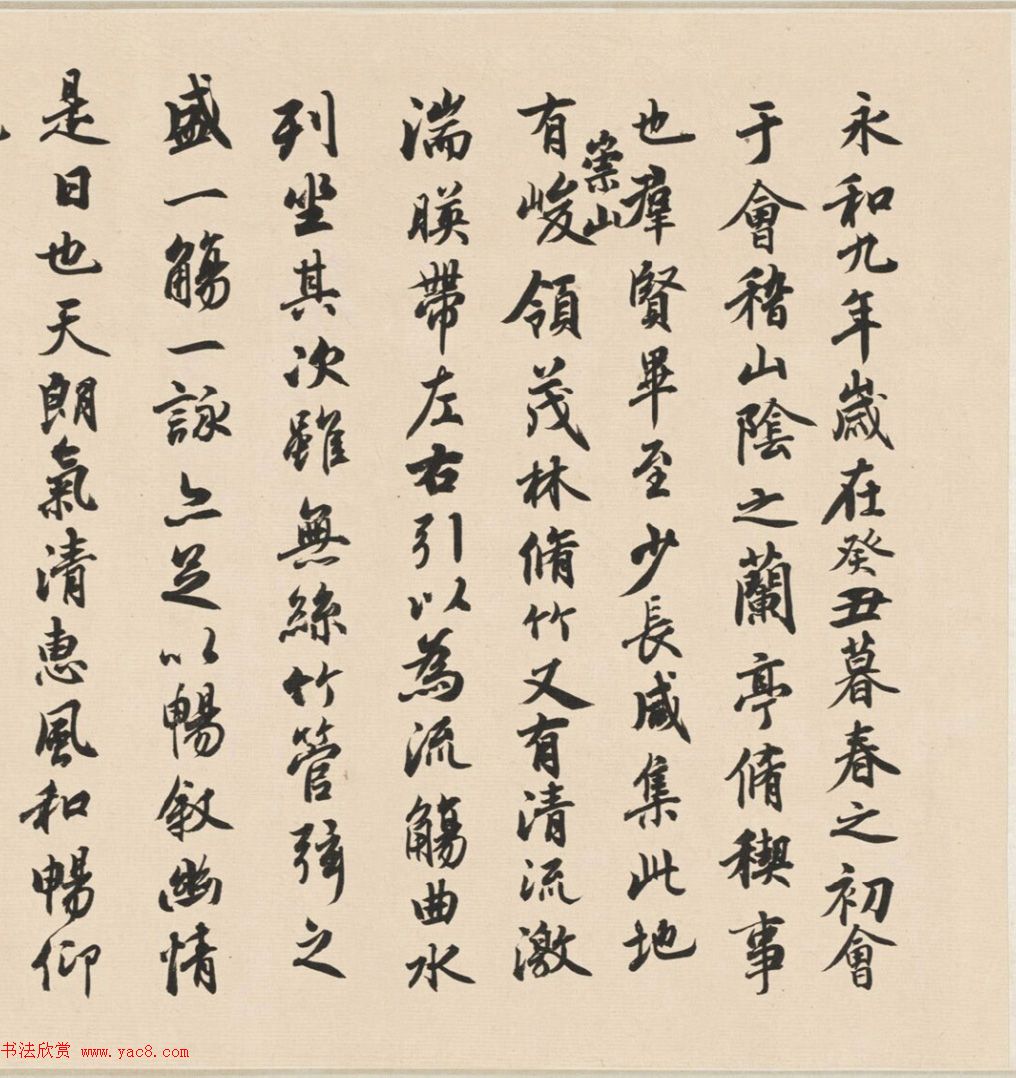 永和九年歲在癸丑暮春之初會
于會稽山陰之蘭亭脩稧事
也羣賢畢至少長咸集此地
崇山
有峻領茂林脩竹又有清流激
湍暎帶左右引以為流觴曲水
列坐其次雖無絲竹管弦之
盛一觴一詠亦足以暢敘幽情
是日也天朗氣清惠風和暢仰
书法欣赏 www.yac8.com